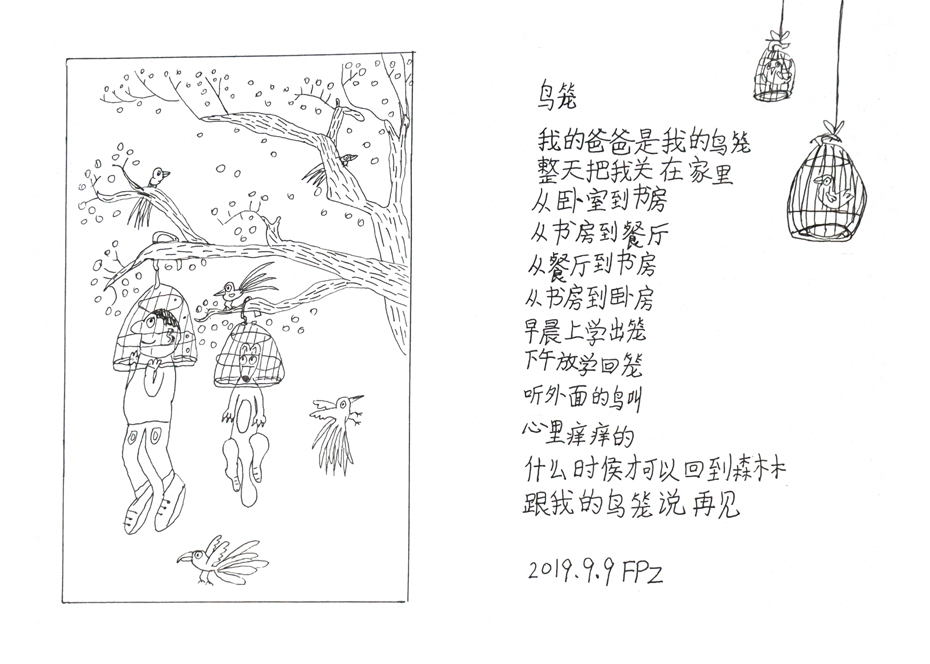 鸟笼
我的爸爸是我的鸟笼
整天把我关在家里
从卧室到书房
从书房到餐厅
从餐厅到书房
从书房到卧房
早晨上学出笼
下午放学回笼
听外面的鸟叫
心里痒痒的
什么时候才可以回到森林
跟我的鸟笼说再见
2019.9.9 FPZ